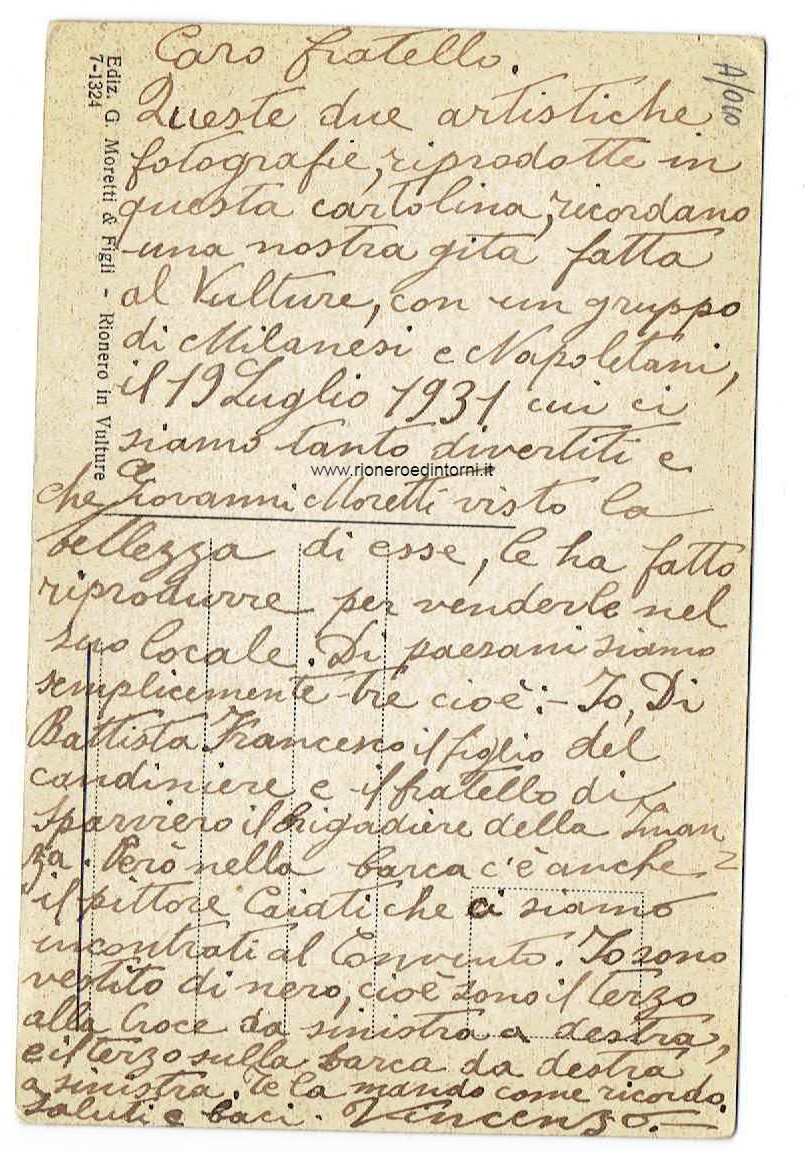 Caro fratello.
Queste due artistiche
fotografie, riprodotte in
questa cartolina, ricordano
una nostra gita fatta
al Vulture, con un gruppo
di Milanesi e Napoletani,
il 19 Luglio 1931 cui ci
siamo tanto divertiti e
www.rioneroedintorni.it
che Giovanni Moretti visto la
bellezza di esse, le ha fatto
riprodurre per venderle nel
suo locale. Di paesani siamo
semplicemente tre cioè:- Io, Di
Battista Francesco il figlio del
candiniere e il fratello di
Sparviero il brigadiere della Finan
za. Però nella barca c'è anche
il pittore Caiati che ci siamo
incontrati al Convento. Io sono
vestito di nero, cioè sono il terzo
alla Croce da sinistra a destra,
e il terzo sulla barca da destra
a sinistra. Te la mando come ricordo.
Saluti e baci. Vincenzo.
Ediz. G. Moretti & Figli - Rionero in Vulture
7-1324